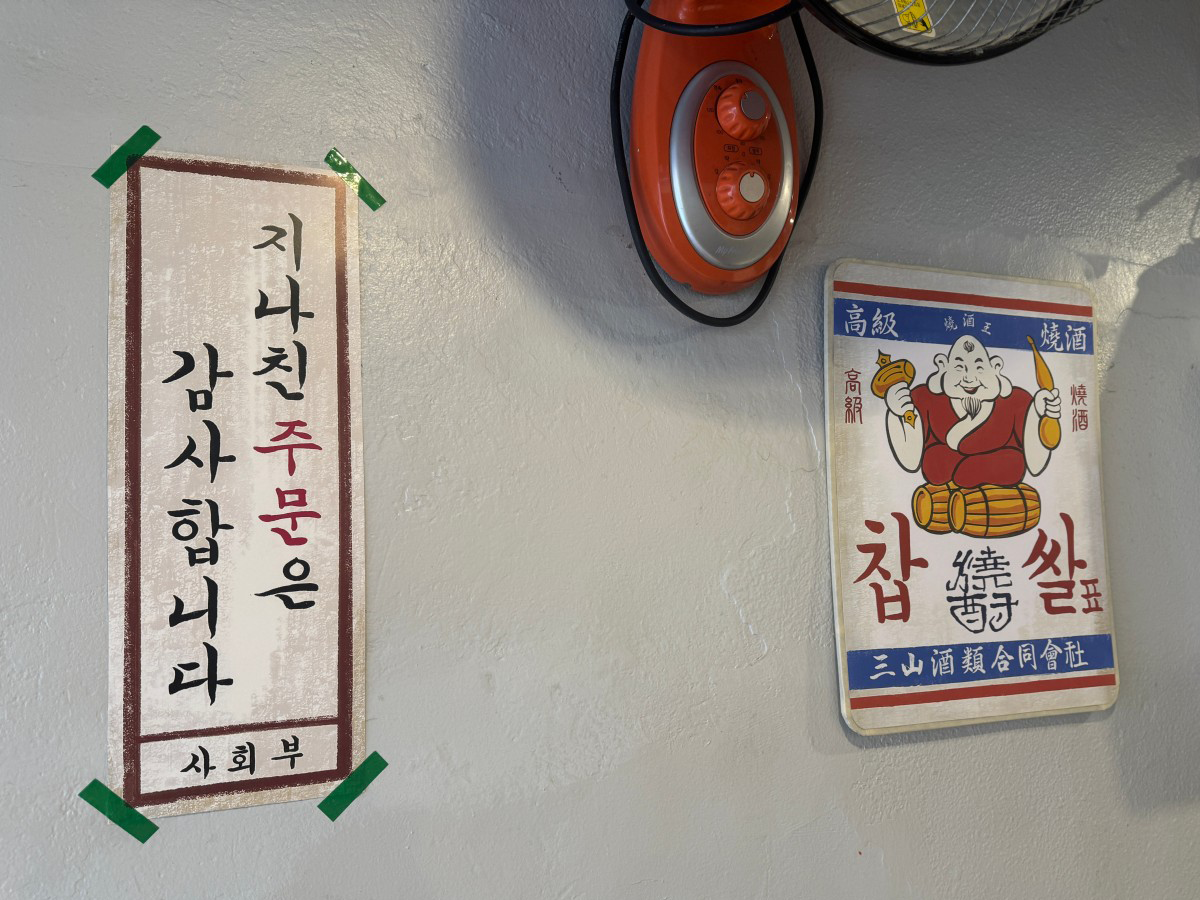 지나친 주문은
감사합니다
사회부
高級 燒酒王 燒酒
高級
燒酒
찹쌀표
燒酎
三山酒類合同會社